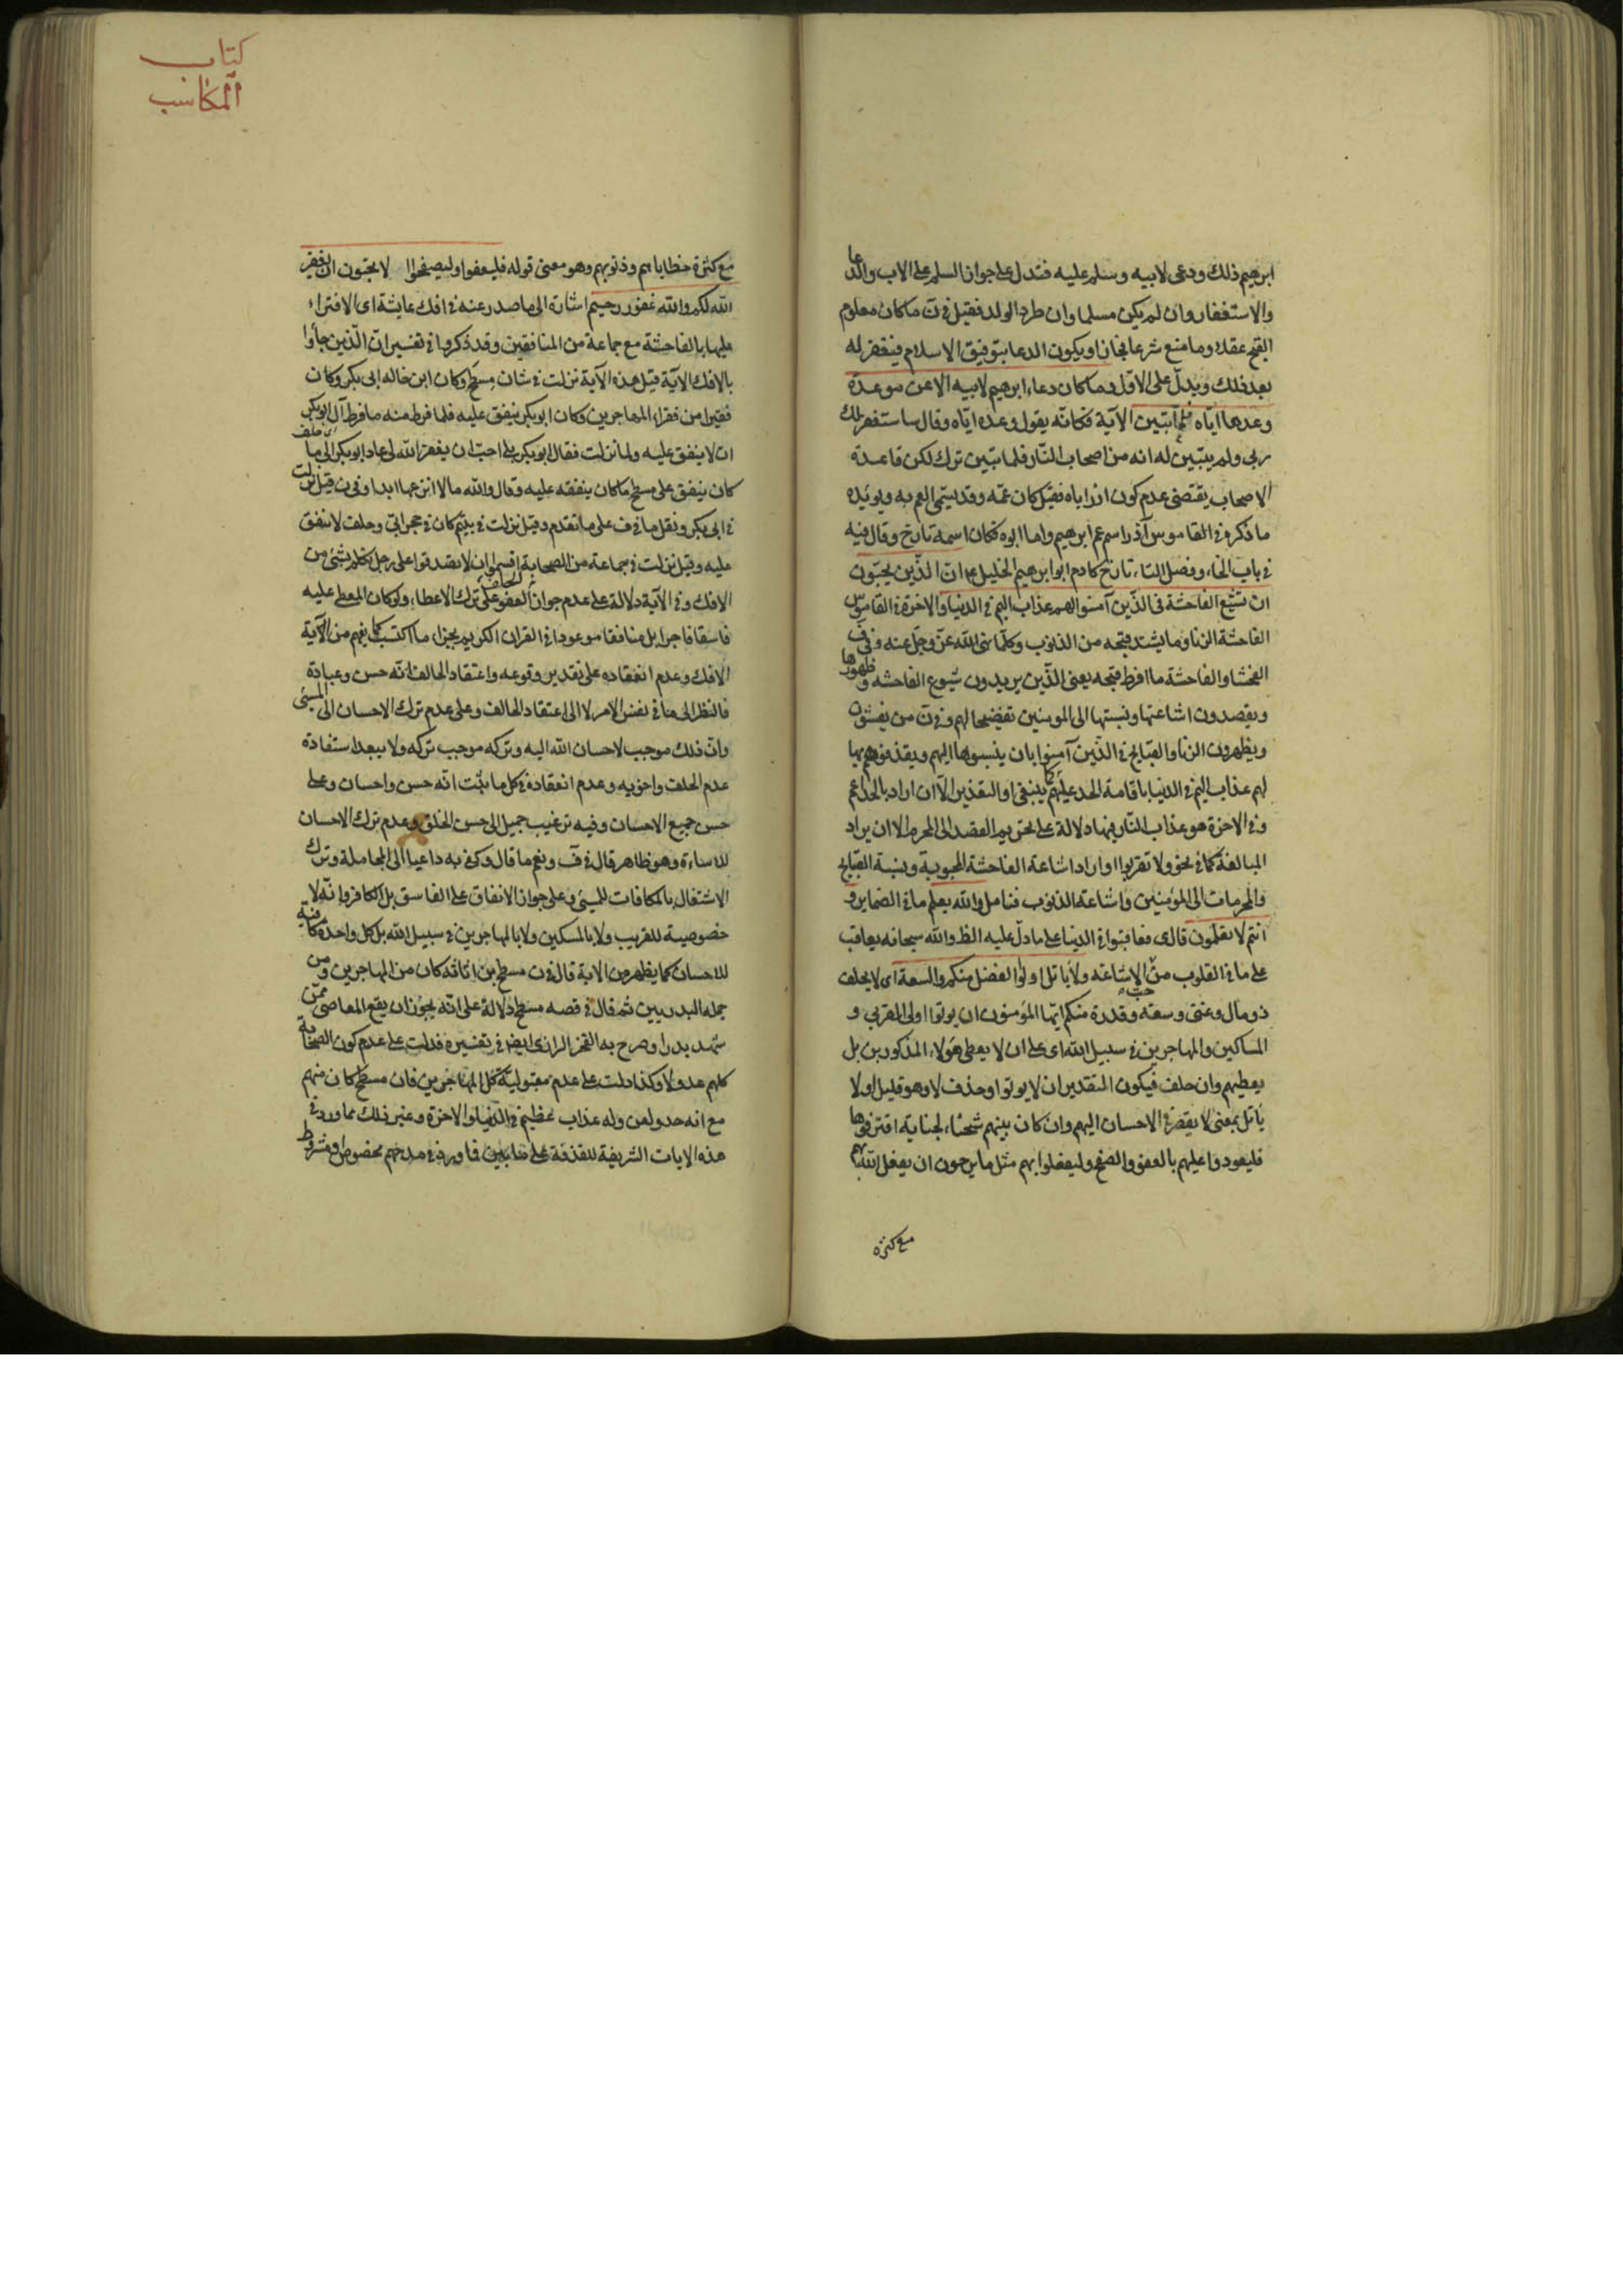 ابرهيم ذلك ودعى لابيه وسلم عليه فتدل على جواز السلم على الاب والدعا
والاستغفار وان لم يكن مسلما وان طرد الولد فقيل في ن ما كان معلوم
القبح عقلا وما منع شرعا فجاز او يكون الدعا بتوفيق الاسلام فيغفر له
بعد ذلك ويدل على الاول وما كان دعاء ابرهيم لابيه الا عن موعدة
وعدها اياه فلما تبين الآية فكانه يقول وعده اياه وقال ساستغفر لك
ربي ولم يتبين له انه من اصحاب النار فلما تبين ترك لكن قاعدة
الاصحاب يقتضى عدم كون ازر اباه فقيل كان عمه وقد يسمى العم به ويويده
ما ذكره في القاموس آذر اسم عم ابرهيم واما ابوه فكان اسمه تارخ وقال فيه
في باب الخاء وفصل التاء تارخ كادم ابو ابرهيم الخليل ع ان الذين يحبون
ان تشيع الفاحشة في الذين آمنوا لهم عذاب اليم في الدنيا والاخرة في القاموس
الفاحشة الزنا وما يشتد قبحه من الذنوب وكلما نهى الله عز وجل عنه وفي ف
الفحشا والفاحشة ما افرط قبحه يعنى الذين يريدون شيوع الفاحشه وظهورها
ويقصدون اشاعتها ونسبتها الى المومنين تفضيحا لهم وفي ن من يفشون
ويظهرون الزنا والقبايح في الذين آمنوا بان ينسبوها اليهم ويقذفوهم بها
لهم عذاب اليم في الدنيا باقامة الحد عليهم كما ينبغى او التعذير الا ان اراد بالحد اعم
وفي الاخرة هو عذاب النار فيها دلالة على تحريم القصد الى المحرم الا ان يراد
المبالغة كما في نحو ولا تقربوا او اراد اشاعة الفاحشة المحبوبة ونسبة القبايح
والمحرمات الى المؤمنين واشاعة الذنوب فتامل والله يعلم ما في الضماير و
انتم لا تعلمون قال ى فعاقبوا في الدنيا على ما دل عليه الظ والله سبحانه يعاقب
على ما في القلوب من حب الاشاعه ولا ياتل اولوا الفضل منكم والسعة اى لا يحلف
ذو مال وغنى وسعة وقدرة منكم ايها المؤمنون ان يوتوا اولى القربى و
المساكين والمهاجرين في سبيل الله اى على ان لا يعطى هؤلاء المذكورين بل
يعطيهم وان حلف فيكون التقدير ان لا يوتوا وحذف لا وهو قليل او لا
ياتل بمعنى لا يقصر في الاحسان اليهم وان كان بينهم شحناء لجناية اقترفوها
فليعودوا عليهم بالعفو والصفح وليفعلوا بهم مثل ما يرجون ان يفعل الله بهم
مع كثرة
كتاب
المكاسب
مع كثرة خطاياهم وذنوبهم وهو معنى قوله فليعفوا وليصفحوا الا تحبون ان يغفر
الله لكم والله غفور رحيم اشارة الى ما صدر عنه في افك عايشة اى الافتراء
عليها بالفاحشة مع جماعة من المنافقين وقد ذكروا في تفسير ان الذين جاؤا
بالافك الآية قيل هذه الآية نزلت في شان مسطح وكان ابن خاله ابى بكر وكان
فقيرا من فقراء المهاجرين وكان ابوبكر ينفق عليه فلما فرط منه ما فرط آلى ابوبكر اى حلف
ان لا ينفق عليه ولما نزلت فقال ابوبكر بلى احب ان يغفر الله لى عاد ابوبكر الى ما
كان ينفق على مسطح ما كان ينفقه عليه وقال والله ما لا انزعها ابدا وفي ن قيل نزلت
في ابى بكر ونقل ما في ف على ما تقدم وقيل نزلت في يتيم كان في حجر ابى وحلف لا ينفق
عليه وقيل نزلت في جماعة من الصحابة اقسموا ان لا يتصدقوا على رجل تكلم بشئ من
الافك وفي الآية دلالة على عدم جواز الحلف على ترك العفو وعلى ترك الاعطاء ولو كان المعطى عليه
فاسقا فاجرا بل منافقا موعودا في القران الكريم بجزاء ما اكتسب كما يفهم من الآية
الافك وعدم انعقاده على تقدير وقوعه واعتقاد الحالف انه حسن وعبادة
فالنظر الى هنا في نفس الامر لا الى اعتقاد الحالف وعلى عدم ترك الاحسان الى المسئ
وان ذلك موجب لاحسان الله اليه وتركه موجب تركه ولا يبعد استفادة
عدم الحلف واخويه وعدم انعقاده في كل ما يثبت انه حسن واحسان وعلى
حسن جميع الاحسان وفيه ترغيب جميل الى حسن الخلق وعدم ترك الاحسان
للاساءة وهو ظاهر قال في ف ونعم ما قال وكفى به داعيا الى المجاملة وترك
الاشتغال بالمكافات للمسئ وعلى جواز الانفاق على الفاسق بل الكافر وانه لا
خصوصية للقريب ولا بالمسكين ولا بالمهاجرين في سبيل الله بل كل واحدة كافية
للاحسان كما يظهر من الاية قال في ن مسطح بن اثاثه كان من المهاجرين ومن
جمله البدريين ثم قال في قصه مسطح دلالة على انه يجوز ان يقع المعاصى ممن
شهد بدرا وصرح به الفخر الرازى ايضا في تفسيره فدلت على عدم كون الصحابة
كلهم عدولا وكذا دلت على عدم مقبولية كل المهاجرين فان مسطح كان منهم
مع انه حد ولعن وله عذاب عظيم في الدنيا والاخرة وغير ذلك مما ورد في
هذه الايات الشريفة للقذفة على فما ورد في مدحهم مخصوص او مشروط